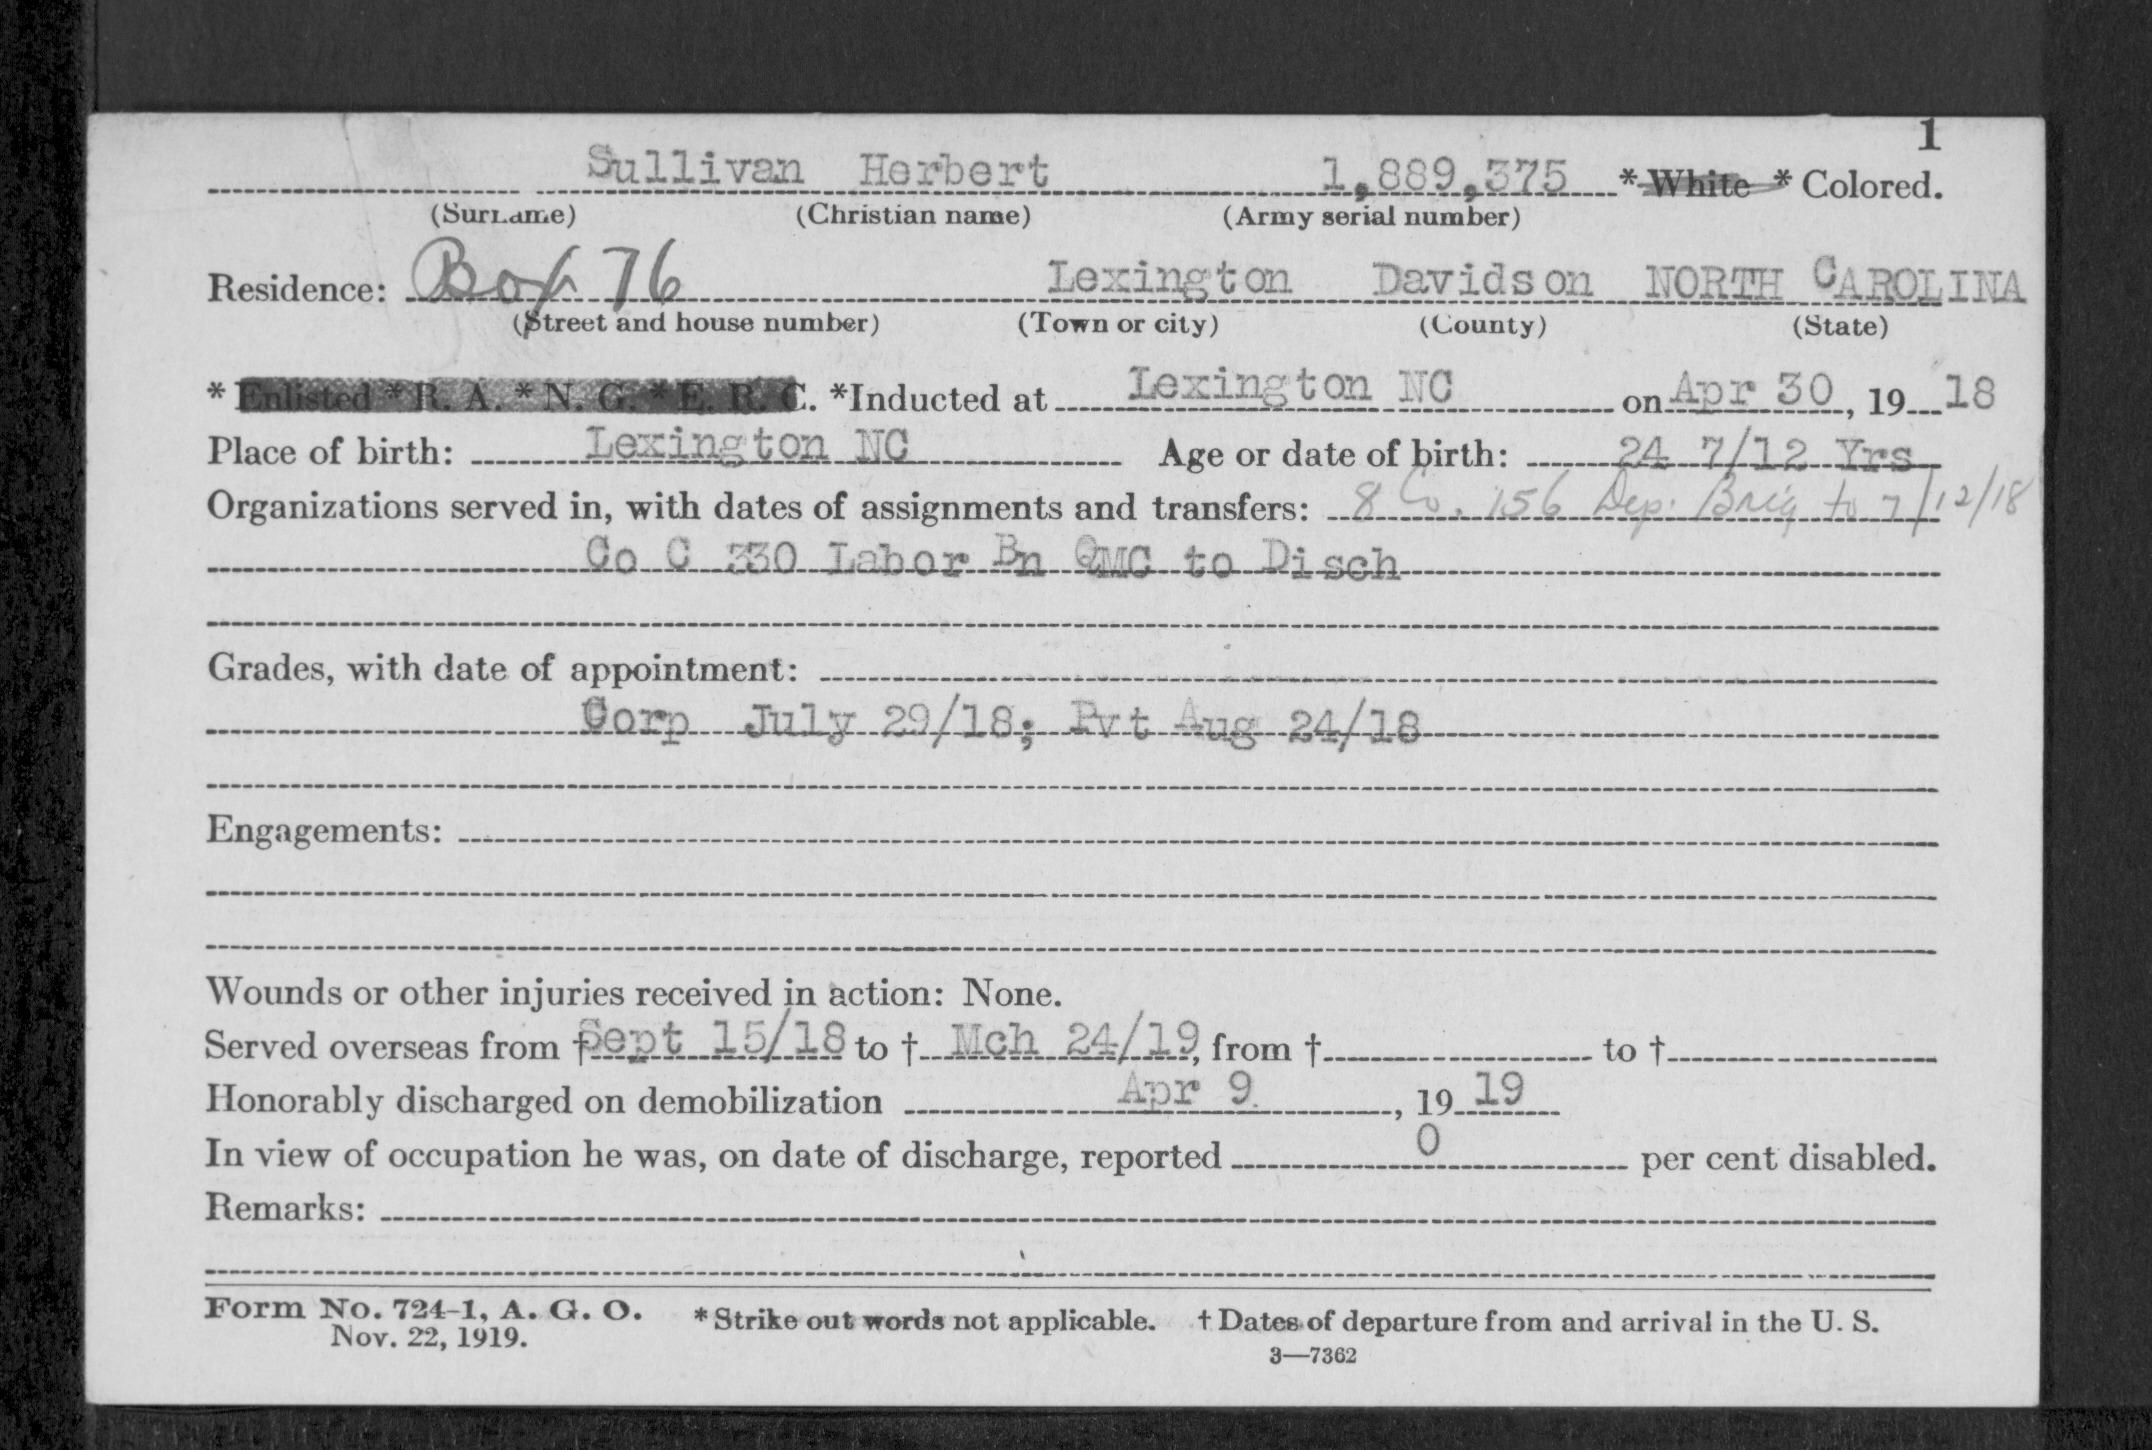 1
Sullivan Herbert 1,889,375 * White * Colored.
(Surname) (Christian name) (Army serial number)
Residence: Box 76 Lexington Davidson NORTH CAROLINA
(Street and house number) (Town or city) (County) (State)
* Enlisted * R. A. * N. G. * E. R. C. *Inducted at Lexington NC on Apr 30, 19 18
Place of birth: Lexington NC Age or date of birth: 24 7/12 Yrs
Organizations served in, with dates of assignments and transfers: 8 Co. 156 Dep. Brig to 7/12/18
Co C 330 Labor Bn QMC to Disch
Grades, with date of appointment:
Corp July 29/18; Pvt Aug 24/18
Engagements:
Wounds or other injuries received in action: None.
Served overseas from † Sept 15/18 to † Mch 24/19, from † to †
Honorably discharged on demobilization Apr 9, 19 19
In view of occupation he was, on date of discharge, reported 0 per cent disabled.
Remarks:
Form No. 724-1, A. G. O. * Strike out words not applicable. † Dates of departure from and arrival in the U. S.
Nov. 22, 1919.
3—7362